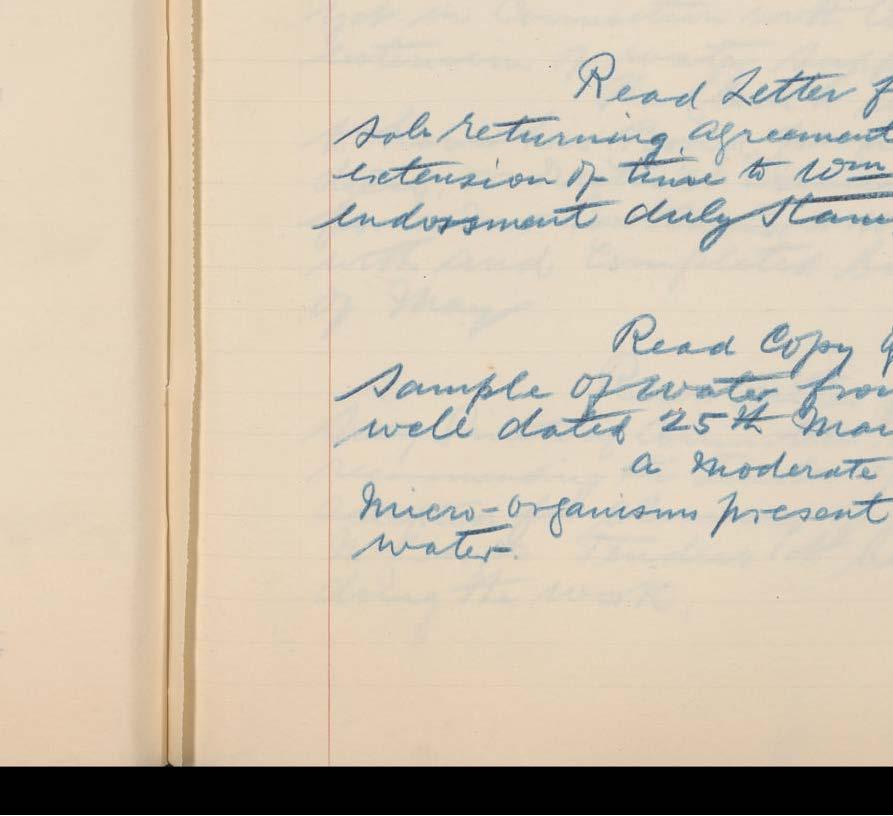 Read Letter f
Sols returning agreement
extension of time to Wm
endorsment duly Stam
Read Copy
Sample of Water from
well dated 25th Mar
a moderate
Micro-organisms present
water.